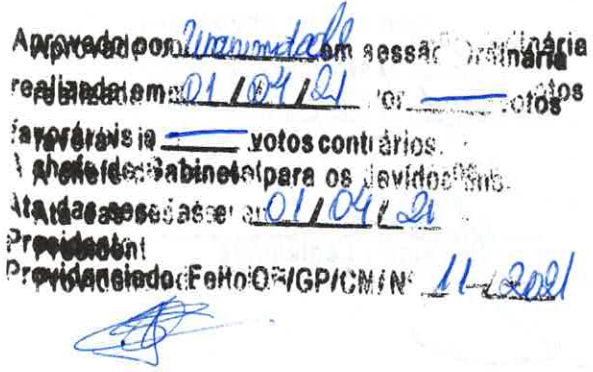 Aprovado por Unanimidade em sessão Ordinária
realizada em 01 / 04 / 21 por — votos
favoráveis e — votos contrários.
A chefe de Gabinete para os devidos fins.
Ata das sessões em 01 / 04 / 21
Presidente
Providenciado: Feito OF/GP/CM/Nº 11-/2021